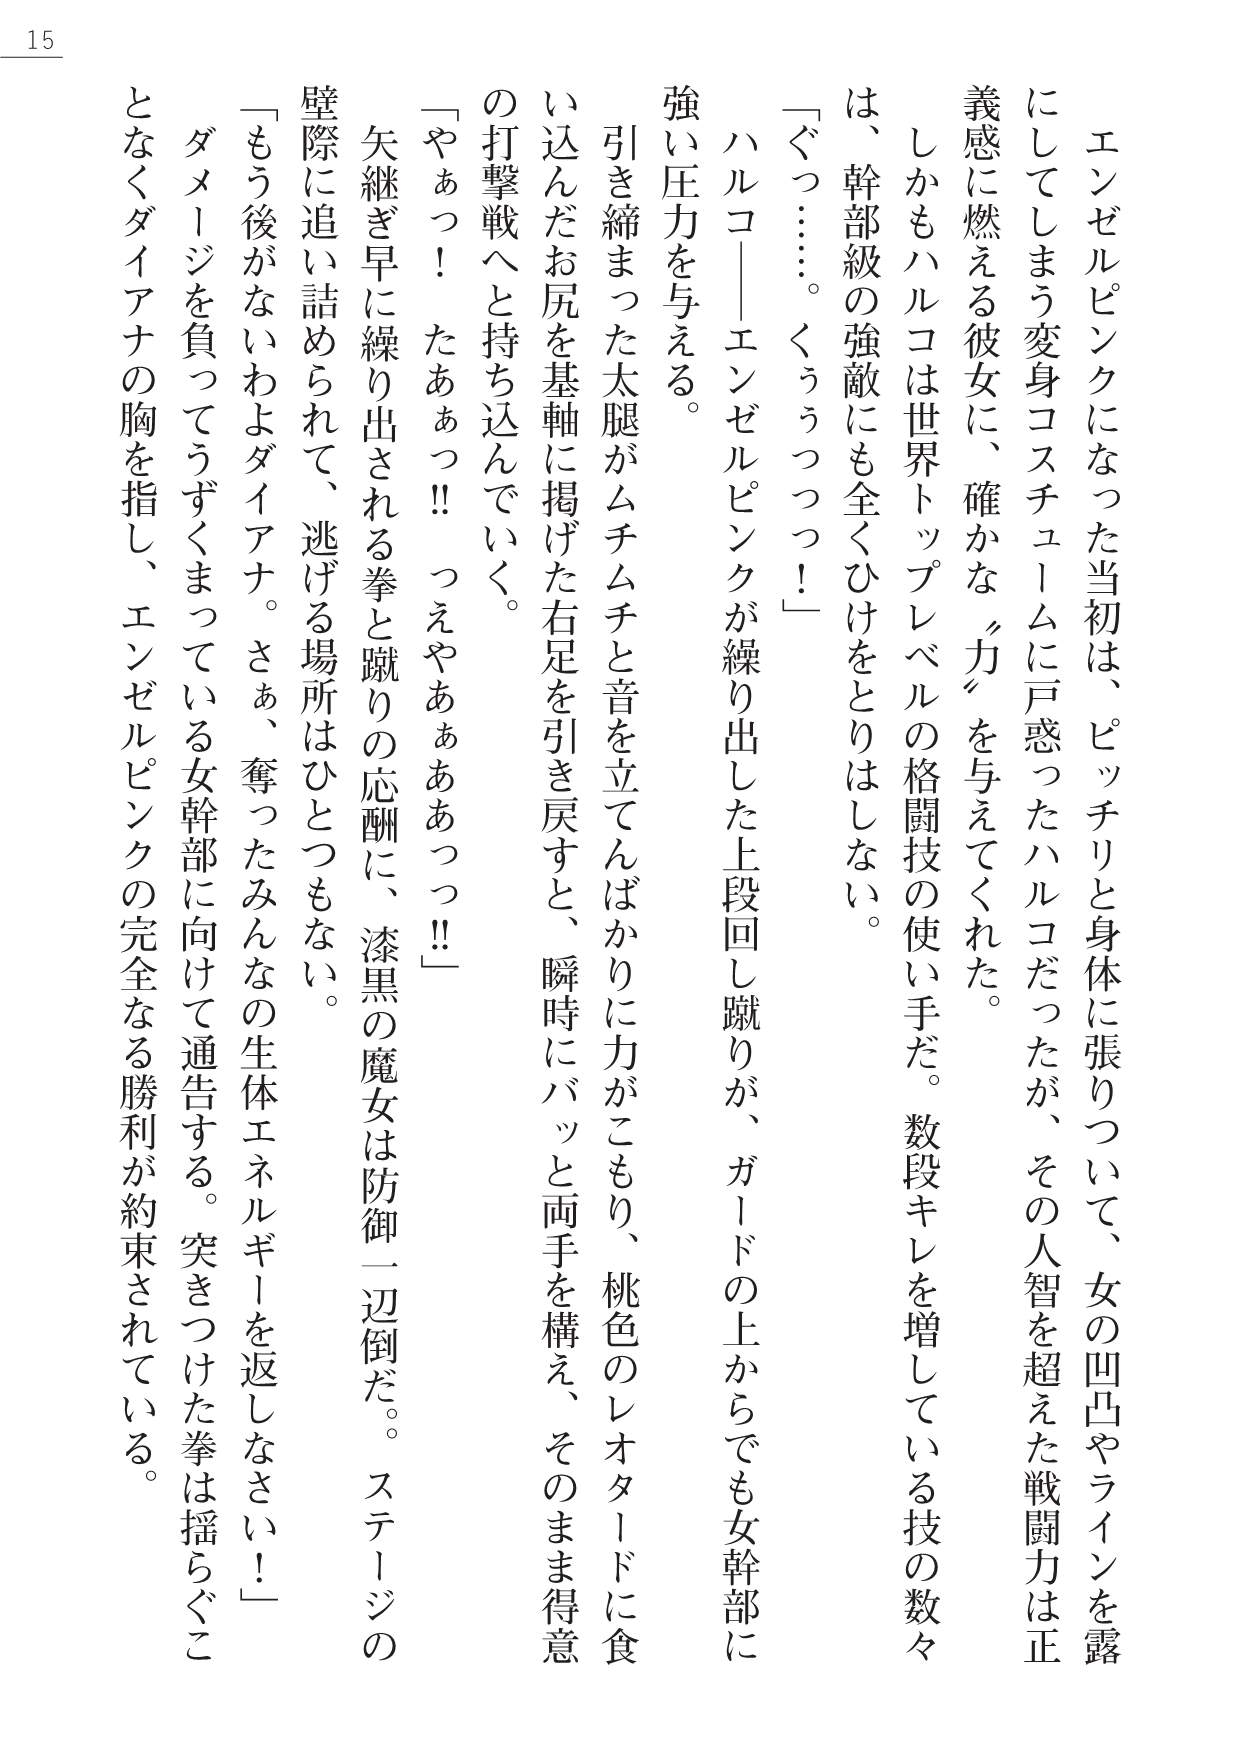 15
　エンゼルピンクになった当初は、ピッチリと身体に張りついて、女の凹凸やラインを露
にしてしまう変身コスチュームに戸惑ったハルコだったが、その人智を超えた戦闘力は正
義感に燃える彼女に、確かな〝力〟を与えてくれた。
　しかもハルコは世界トップレベルの格闘技の使い手だ。数段キレを増している技の数々
は、幹部級の強敵にも全くひけをとりはしない。
「ぐっ……。くぅぅっっっ！」
　ハルコ――エンゼルピンクが繰り出した上段回し蹴りが、ガードの上からでも女幹部に
強い圧力を与える。
　引き締まった太腿がムチムチと音を立てんばかりに力がこもり、桃色のレオタードに食
い込んだお尻を基軸に掲げた右足を引き戻すと、瞬時にバッと両手を構え、そのまま得意
の打撃戦へと持ち込んでいく。
「やぁっ！　たあぁっ‼　つえやあぁああっっ‼」
　矢継ぎ早に繰り出される拳と蹴りの応酬に、漆黒の魔女は防御一辺倒だ。。ステージの
壁際に追い詰められて、逃げる場所はひとつもない。
「もう後がないわよダイアナ。さぁ、奪ったみんなの生体エネルギーを返しなさい！」
　ダメージを負ってうずくまっている女幹部に向けて通告する。突きつけた拳は揺らぐこ
となくダイアナの胸を指し、エンゼルピンクの完全なる勝利が約束されている。